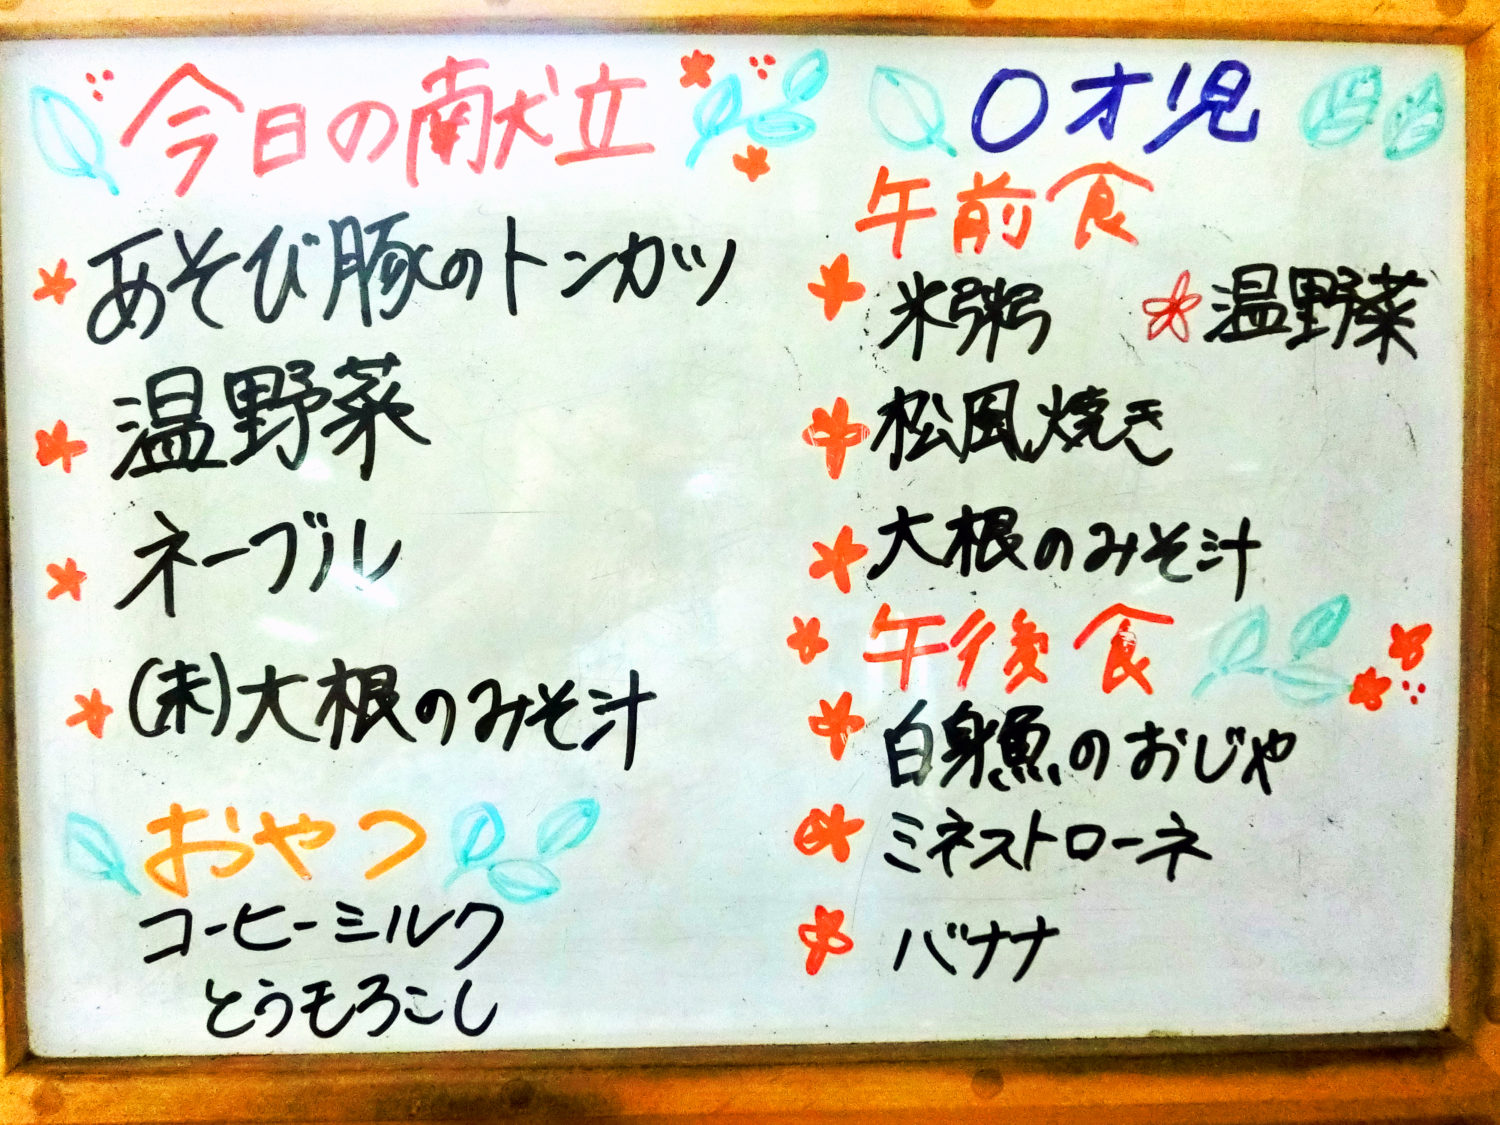 今日の献立
あそび豚のトンカツ
温野菜
ネーブル
(未)大根のみそ汁
おやつ
コーヒーミルク
とうもろこし
0才児
午前食
米粥 温野菜
松風焼き
大根のみそ汁
午後食
白身魚のおじや
ミネストローネ
バナナ